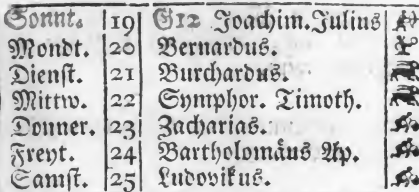 Sonnt. 19 G12 Joachim. Julius
Mondt. 20 Bernardus.
Dienſt. 21 Burchardus.
Mittw. 22 Symphor. Timoth.
Donner. 23 Zacharias.
Freyt. 24 Bartholomäus Ap.
Samſt. 25 Ludovikus.